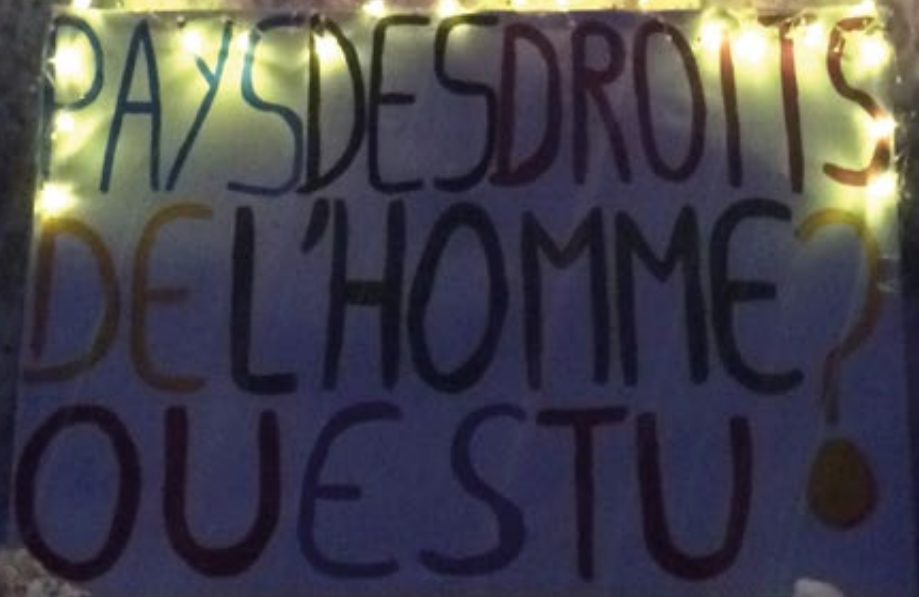 PAYS DES DROITS
DE L'HOMME ?
OU ES TU